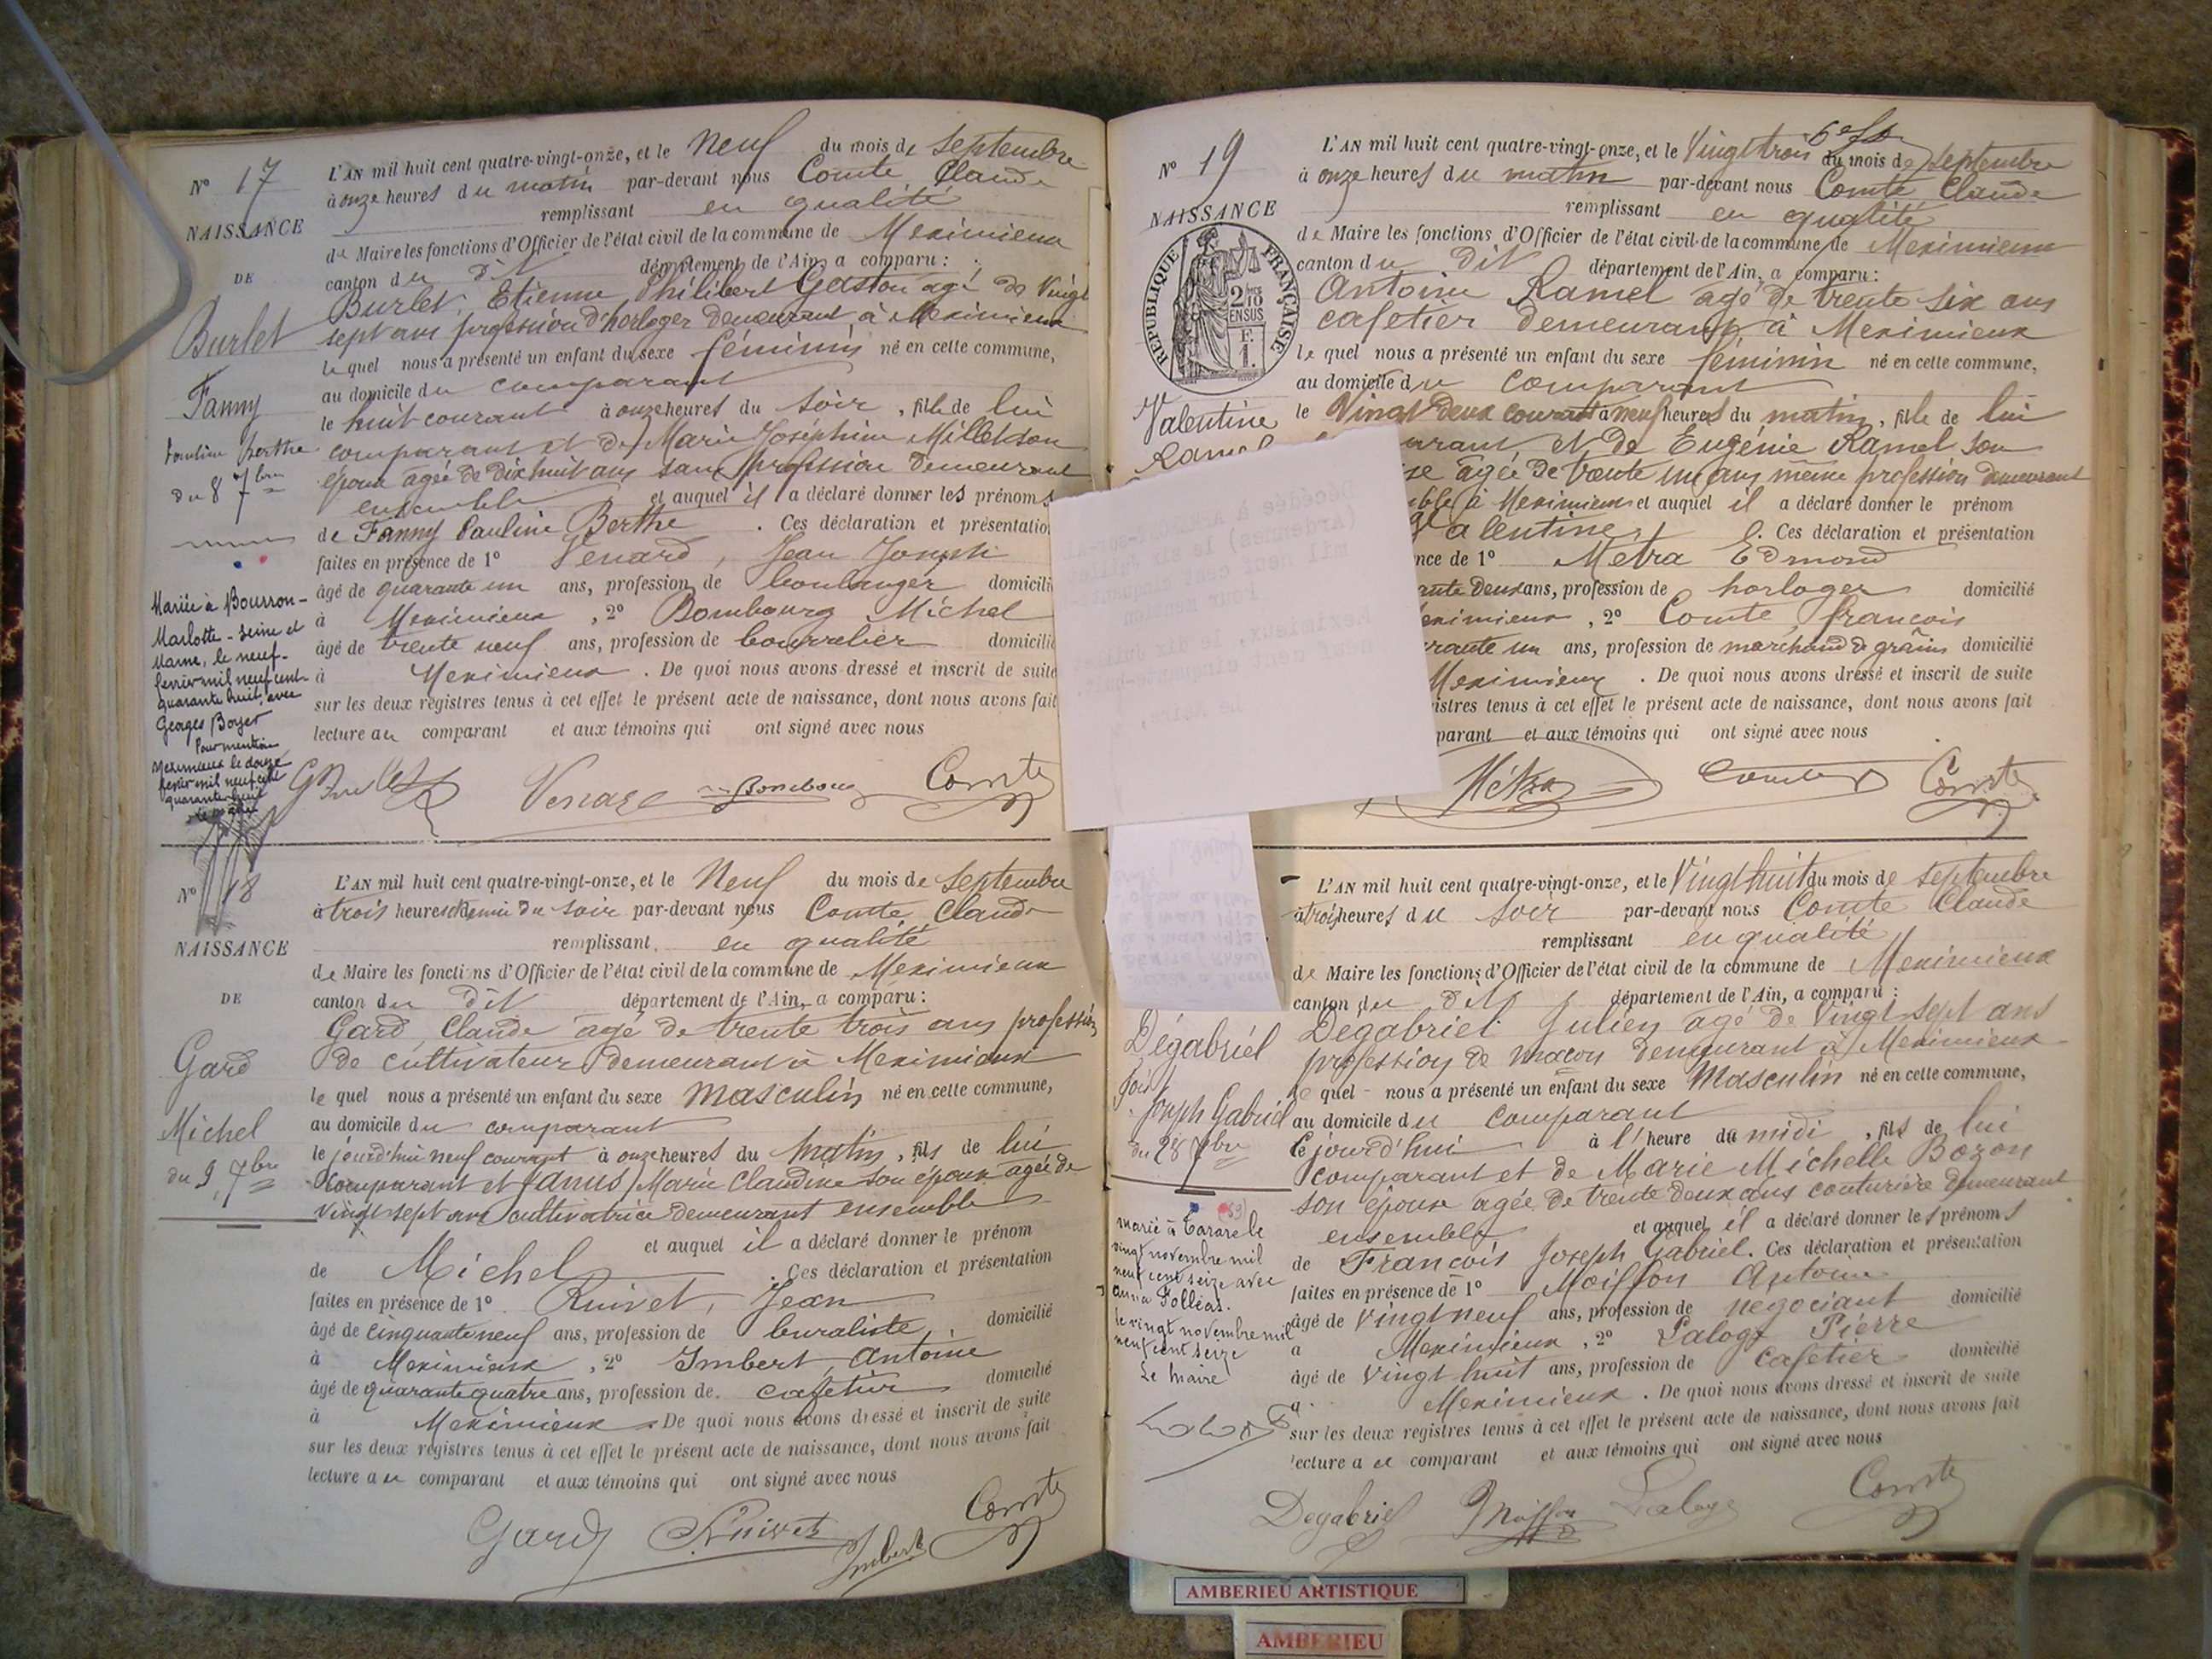 N° 17
NAISSANCE
DE
Burlet
Fanny
Pauline Berthe
du 8 7bre
Mariée à Bourron-
Marlotte - Seine et
Marne, le neuf
février mil neuf cent
quarante huit, avec
Georges Boyer
Pour mention
Meximieux le douze
février mil neuf cent
quarante huit
Le maire
L'AN mil huit cent quatre-vingt-onze, et le Neuf du mois de Septembre
à onze heures du matin par-devant nous Comte Claude
remplissant en qualité
de Maire les fonctions d'Officier de l'état civil de la commune de Meximieux
canton du dit département de l'Ain, a comparu :
Burlet, Etienne Philibert Gaston agé de Vingt
sept ans profession d'horloger demeurant à Meximieux
lequel nous a présenté un enfant du sexe féminin né en cette commune,
au domicile du comparant
le huit courant à onze heures du soir, fille de lui
comparant et de Marie Joséphine Milletson
épouse agée de dix huit ans sans profession demeurant
ensemble et auquel il a déclaré donner les prénoms
de Fanny Pauline Berthe. Ces déclaration et présentatio
faites en présence de 1° Venard, Jean Joseph
âgé de quarante un ans, profession de boulanger domicili
à Meximieux, 2° Bombourg Michel
âgé de trente neuf ans, profession de bourrelier domicili
à Meximieux. De quoi nous avons dressé et inscrit de suite
sur les deux registres tenus à cet effet le présent acte de naissance, dont nous avons fait
lecture au comparant et aux témoins qui ont signé avec nous
G Burlet Venard Bombourg Comte
N° 18
NAISSANCE
DE
Gard
Michel
du 9 7bre
L'AN mil huit cent quatre-vingt-onze, et le Neuf du mois de Septembre
à trois heures et demie du soir par-devant nous Comte Claude
remplissant en qualité
de Maire les fonctions d'Officier de l'état civil de la commune de Meximieux
canton du dit département de l'Ain, a comparu :
Gard, Claude agé de trente trois ans profession
de cultivateur demeurant à Meximieux
lequel nous a présenté un enfant du sexe Masculin né en cette commune,
au domicile du comparant
le jourd'hui neuf courant à onze heures du Matin, fils de lui
comparant et Janus Marie Claudine son épouse agée de
vingt sept ans cultivatrice demeurant ensemble
et auquel il a déclaré donner le prénom
de Michel. Ces déclaration et présentation
faites en présence de 1° Ruivet, Jean
âgé de cinquante neuf ans, profession de buraliste, domicilié
à Meximieux, 2° Imbert, Antoine
âgé de quarante quatre ans, profession de cafetier domicilié
à Meximieux. De quoi nous avons dressé et inscrit de suite
sur les deux registres tenus à cet effet le présent acte de naissance, dont nous avons fait
lecture au comparant et aux témoins qui ont signé avec nous
Gard Ruivet Imbert Comte
N° 19
NAISSANCE
RÉPUBLIQUE FRANÇAISE
2/10 EN SUS
1 F.
Valentine
Ramel
L'AN mil huit cent quatre-vingt-onze, et le Vingt trois du mois de Septembre
à onze heures du matin par-devant nous Comte Claude
remplissant en qualité
de Maire les fonctions d'Officier de l'état civil de la commune de Meximieux
canton du dit département de l'Ain, a comparu :
Antoine Ramel agé de trente six ans
cafetier demeurant à Meximieux
lequel nous a présenté un enfant du sexe féminin né en cette commune,
au domicile du comparant
le Vingt deux courant à neuf heures du matin, fille de lui
arant et de Eugénie Ramel son
se agée de trente un ans meme profession demeurant
mble à Meximieux et auquel il a déclaré donner le prénom
alentine. Ces déclaration et présentation
nce de 1° Métra Edmond
ante deux ans, profession de horloger domicilié
eximieux, 2° Comte, francois
rante un ans, profession de marchand de grains domicilié
Meximieux. De quoi nous avons dressé et inscrit de suite
istres tenus à cet effet le présent acte de naissance, dont nous avons fait
parant et aux témoins qui ont signé avec nous
Métra Comte Comte
Dégabriel
Joseph Gabriel
du 28 7bre
marié à Tarare le
vingt novembre mil
neuf cent seize avec
Anna Folléas.
le vingt novembre mil
neuf cent seize
Le Maire
L'AN mil huit cent quatre-vingt-onze, et le Vingt huit du mois de Septembre
à trois heures du soir par-devant nous Comte Claude
remplissant en qualité
de Maire les fonctions d'Officier de l'état civil de la commune de Meximieux
canton du dit département de l'Ain, a comparu :
Degabriel Julien agé de vingt sept ans
profession de maçon demeurant à Meximieux
lequel nous a présenté un enfant du sexe Masculin né en cette commune,
au domicile du comparant
le jourd'hui à l'heure du midi, fils de lui
comparant et de Marie Michelle Bozon
son épouse agée de trente deux ans couturière demeurant
ensemble et auquel il a déclaré donner les prénoms
de Francois Joseph Gabriel. Ces déclaration et présentation
faites en présence de 1° Moiffon Antoine
âgé de Vingt neuf ans, profession de negociant domicilié
à Meximieux, 2° Laloge Pierre
âgé de Vingt huit ans, profession de cafetier domicilié
à Meximieux. De quoi nous avons dressé et inscrit de suite
sur les deux registres tenus à cet effet le présent acte de naissance, dont nous avons fait
lecture au comparant et aux témoins qui ont signé avec nous
Degabriel Moiffon Laloge Comte
AMBERIEU ARTISTIQUE
AMBERIEU